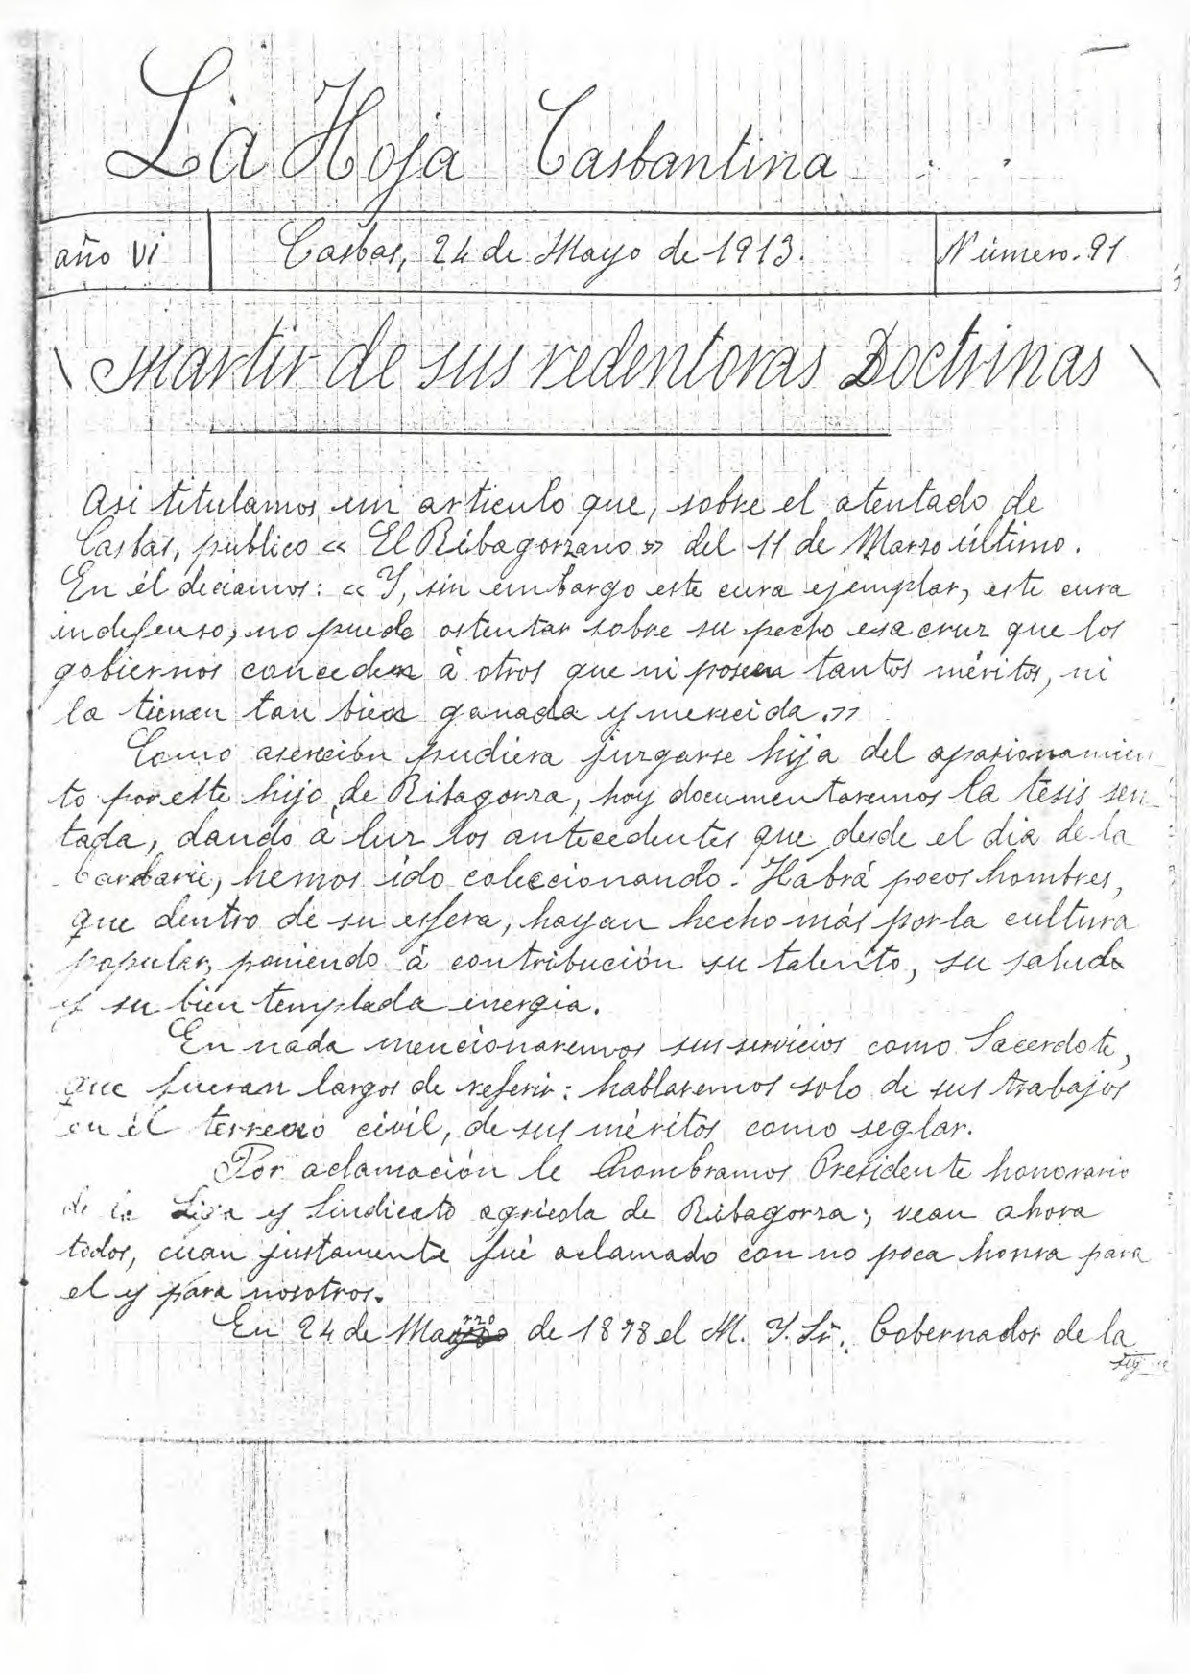 La Hoja Casbantina
año VI
Casbas, 24 de Mayo de 1913.
Número. 91
Martir de sus redentoras Doctrinas
Asi titulamos un articulo que, sobre el atentado de
Casbas, publico « El Ribagorzano » del 11 de Marzo último.
En él deciamos: « Y, sin embargo este cura ejemplar, este cura
indefenso, no puede ostentar sobre su pecho esa cruz que los
gobiernos conceden à otros que ni poseen tantos méritos, ni
la tienen tan bien ganada y merecida.»
Como aserción pudiera juzgarse hija del apasionamien
to por este hijo de Ribagorza, hoy documentaremos la tesis sen_
tada, dando à luz los antecedentes que, desde el dia de la
barbarie, hemos ido coleccionando. Habrá pocos hombres,
que dentro de su esfera, hayan hecho más por la cultura
popular, poniendo à contribución su talento, su salud
y su bien templada energia.
En nada mencionaremos sus servicios como Sacerdote,
que fueran largos de referir: hablaremos solo de sus trabajos
en él terreno civil, de sus méritos como seglar.
Por aclamación le nombramos Presidente honorario
de la Liga y Sindicato agricola de Ribagorza; vean ahora
todos, cuan justamente fué aclamado con no poca honra para
el y para nosotros.
En 24 de Marzo de 1898 el M. Y. Sr. Gobernador de la